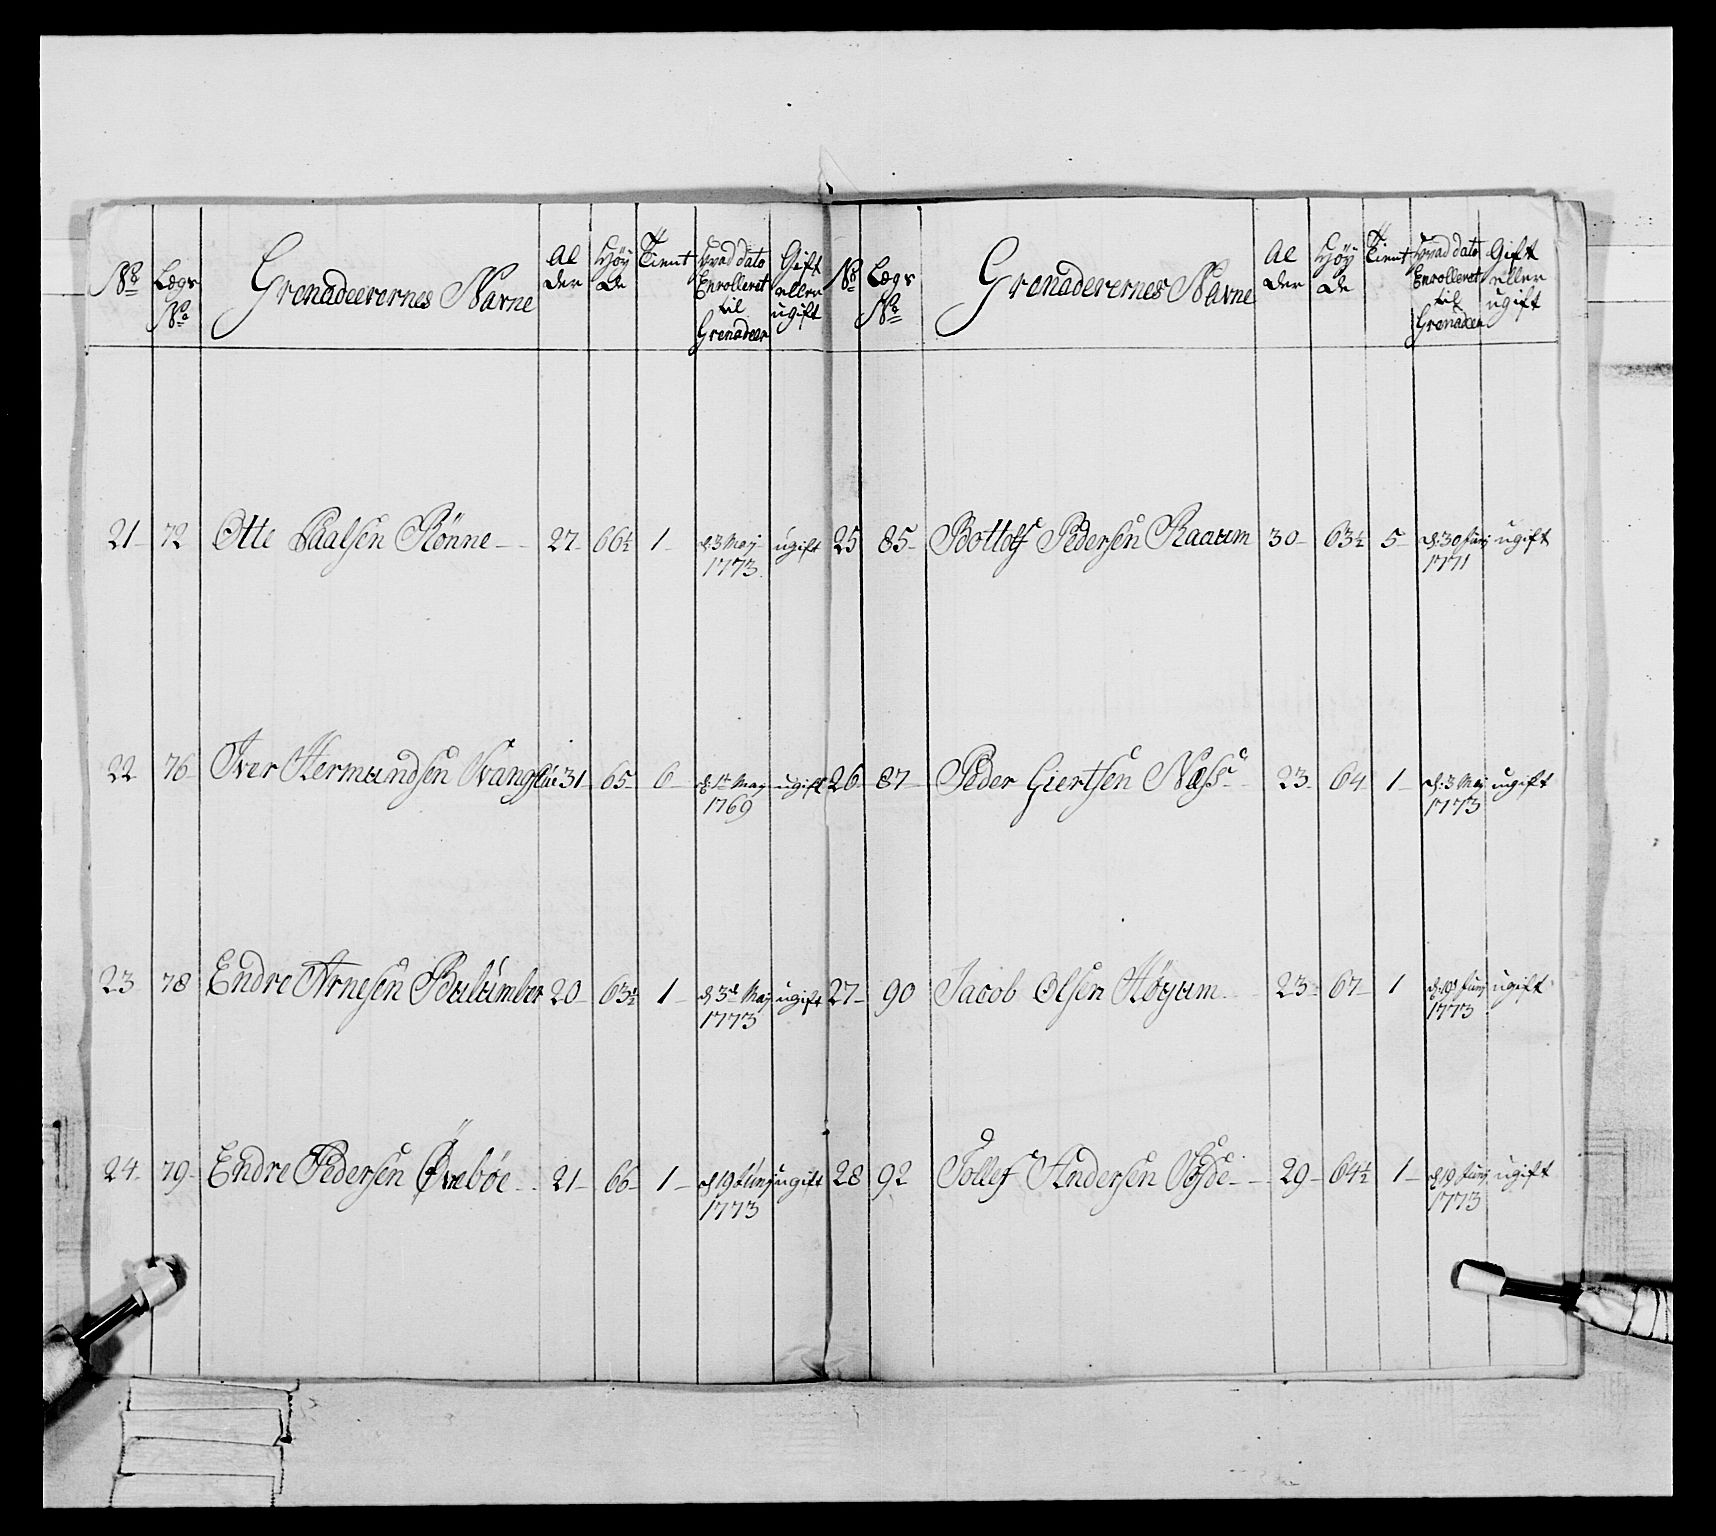 No Lægs No Grenadeerernes Navne Al der Höy de Tient Hvad dato Enrolleret til Grenadeer Gift eller ugift
21 72 Otte Paalsen Rönne 27 66½ 1 d 3 Maj 1773 ugift
22 76 Iver Hermundsen 31 65 6 d 1te May 1769 ugift
23 78 Endre Arnesen 20 63½ 1 d 3de Maj 1773 ugift
24 79 Endre Pedersen Övreböe 21 66 1 d 19 Junj 1773 ugift
No Lægs No Grenaderernes Navne Al der Höy de Tient Hvad dato Enrolleret til Grenadeer Gift eller ugift
25 85 Bottolf Pedersen Raaum 30 63½ 5 d: 30 Junj 1771 ugift
26 87 Peder Giertsen Næss 23 64 1 d: 3 Maj 1773 ugift
27 90 Jacob Olsen Höyum 23 67 1 d: 19 Junj 1773 ugift
28 92 Tollef Andersen 29 64½ 1 d 19 Junj 1773 ugift